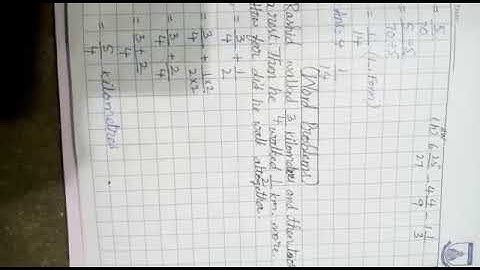 = 5/70
= 5÷5/70÷5
= 1/14 (L.Form)
Ans = 4 1/14
(h) 6 25/27 - 4 4/9 - 1 1/3
(Word Problems)
Rashid walked 3/4 kilometer and then took
a rest. Then he walked 1/2 km more.
How far did he walk altogether.
= 3/4 + 1/2
= 3/4 + 1×2/2×2
= 3/4 + 2/4
= 3+2/4
= 5/4 kilometres